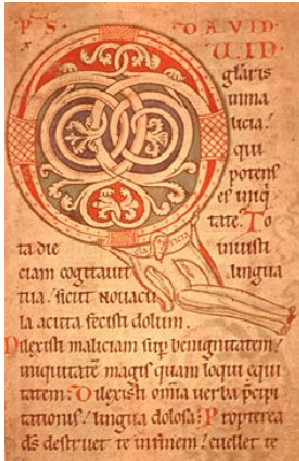 PS · DAVID
QUID
glaris
inma
licia /
qui
potens
es iniq̇
tate. To
ta die iniusti
ciam cogitauit lingua
tua / sicut nouacu
la acuta fecisti dolum.
Dilexisti maliciam sup̱ benignitatem /
iniquitatē magis quam loqui equi
tatem: Dilexisti om̄ia uerba p̱cipi
tationis / lingua dolosa: Propterea
d̄s destruet te infinem / euellet te